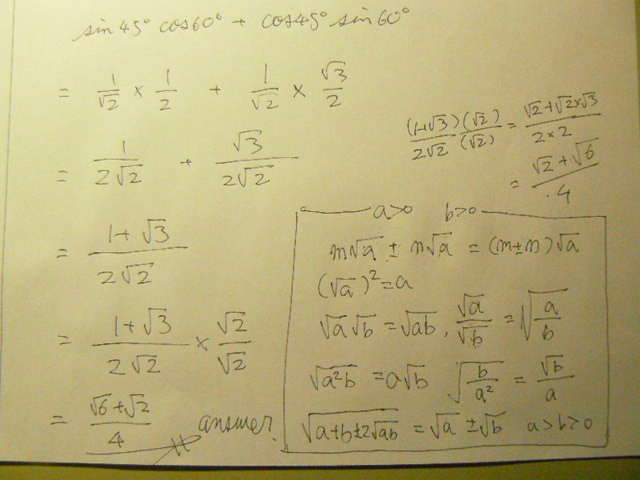 sin 45° cos 60° + cos 45° sin 60°
= 1/√2 × 1/2 + 1/√2 × √3/2
= 1/(2√2) + √3/(2√2)
= (1+√3)/(2√2)
= (1+√3)/(2√2) × √2/√2
= (√6+√2)/4 answer.
(1+√3)(√2)/(2√2 (√2)) = (√2+√2×√3)/(2×2)
= (√2+√6)/4
a>0 b>0
m√a ± n√a = (m±n)√a
(√a)²=a
√a√b = √ab, √a/√b = √(a/b)
√(a²b) = a√b √(b/a²) = √b/a
√(a+b±2√ab) = √a ±√b a>b>0